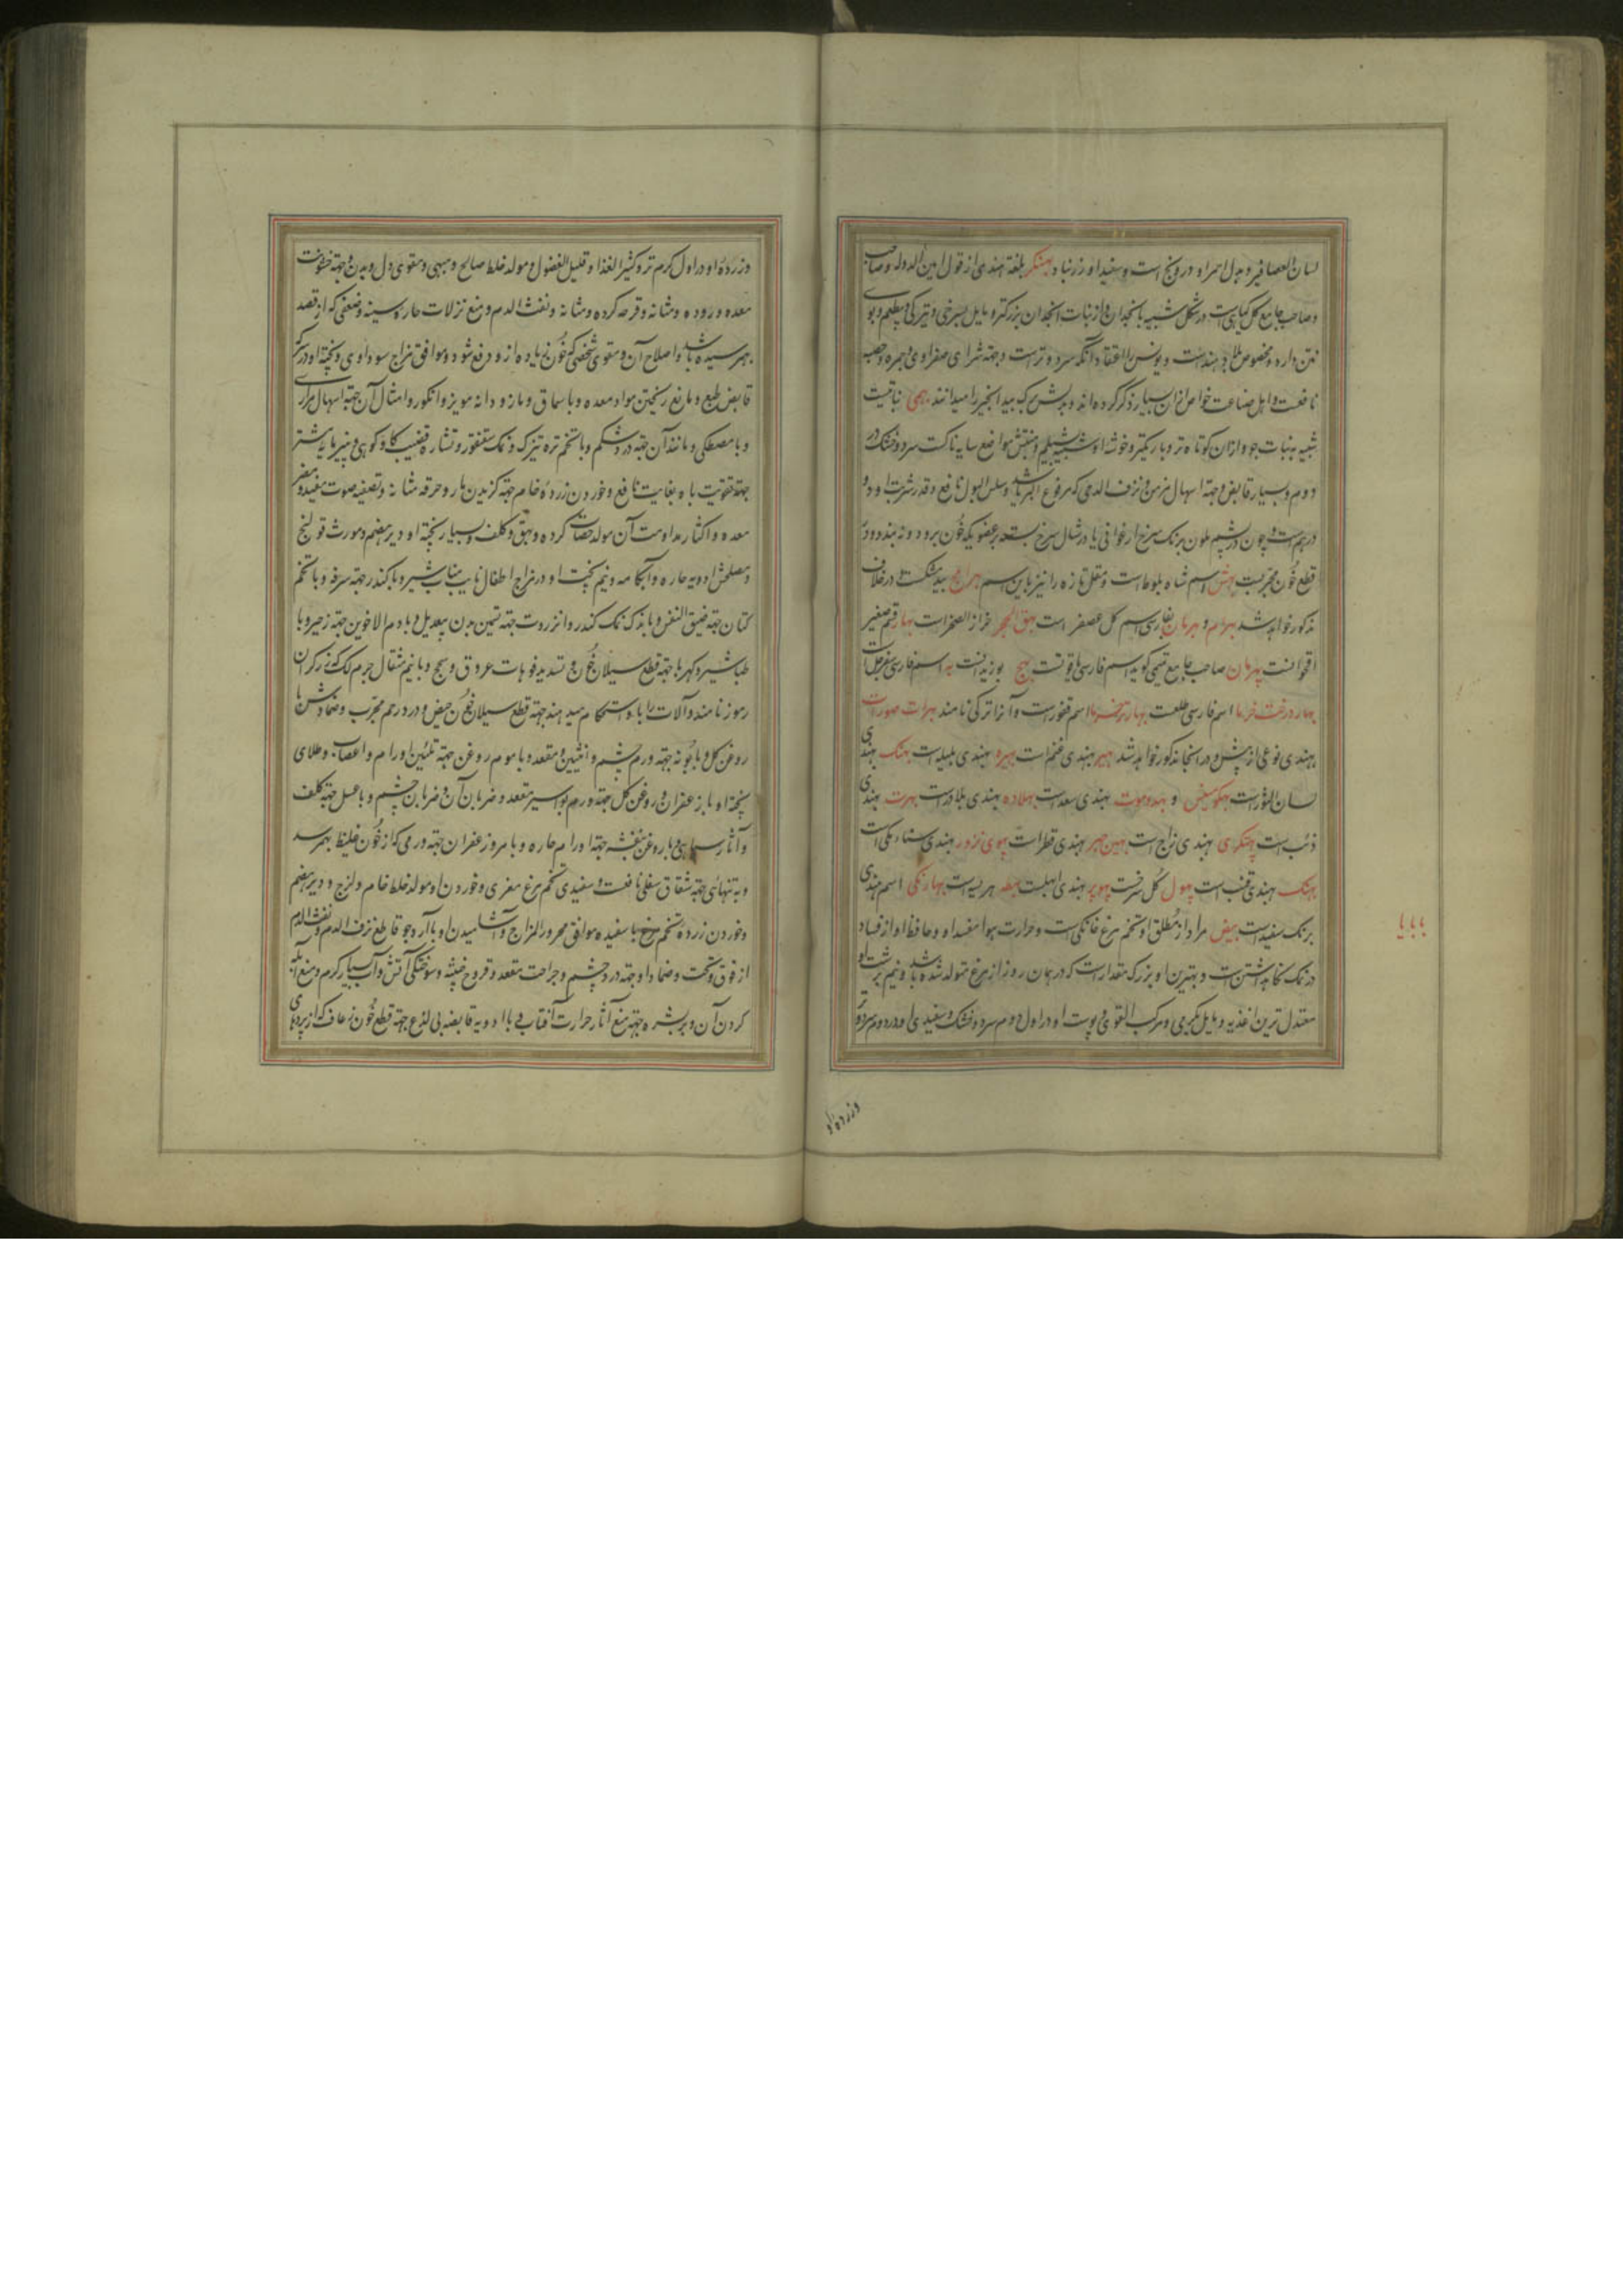 لسان العصافیر و بدل احمر او درونج است و سفید او زرنباد بهنگر بلغة هندی از قول امین الدوله و صاحب
و صاحب جامع کل گیاهی است در شکل شبیه بانجدان و از نبات انجدان بزرگتر و مایل بسرخی و تیرگی و بیطعم و بوی
نتن دارد و مخصوص بلاد هند است و یونس را اعتقاد آنکه سرد و تر است و جهته شرای صفراوی و جمره و حصبه
نافعست و اهل صناعت خواص از آن بسیار ذکر کرده اند و بدلش برک بید انجیر را میدانند بهمی نباتیست
شبیه به نبات جو و از ان کوتاه تر و باریکتر و خوشه او شبیه بشیلم و منبتش مواضع سایه ناکست سرد و خشک در
دوم و بسیار قابض و جهته اسهال مزمن و نزف الدمی که مرفوع البرء باشد و سلس البول نافع و قدر شربت او دو
درهم است و چون در پشم ملون برنک سرخ ارغوانی یا در شال سرخ بسته بر عضویکه خون برود و نه بندد در
قطع خون مجربست بهش اسم شاه بلوط است و مقل تازه را نیز باین اسم بهرامج بید مشکست در خلاف
مذکور خواهد شد بهرام و بهرمان بفارسی اسم کل عصفر است بهق الحجر خزاز الصخر است بهار قسم صغیر
اقحوانست بهرمان صاحب جامع تمیمی کوید اسم فارسی یاقوتست بهج بوزیدانست به اسم فارسی سفرجل است
بهار درخت خرما اسم فارسی طلعست بهار درخت خرما اسم قفور است و آنرا ترکی نامند بهرات صورات
بهندی نوعی از پیش و در انجا مذکور خواهد شد بهیر بهندی غنم است بهیره بهندی بلیله است بهنک بهندی
لسان الثور است بهکوسیفس و بهدموت بهندی سعد است بهلاده بهندی بلادر است بهرت بهندی
ذئب است پهتکری بهندی زاج است بهین مهر بهندی قطر است پهوی نرور بهندی سناء مکی است
بهنک بهندی قنب است پهول گل سرخست پهوبر بهندی ابهلست بهطه هریسه است بهارنکی اسم هندی
برنک سفید است بیض مراد از مطلق او تخم مرغ خانگی است و حرارت هوا مفسد او و حافظ او از فساد
در نمک نگاه داشتن است و بهترین او بزرگ مقدار است که در همان روز از مرغ متولد شده باشد و نیم برشت او
معتدل ترین اغذیه و مایل بگرمی و مرکب القوی و پوست او در اول دوم سرد و خشک و سفیدی او در دوم سرد و تر
و زرده او
وزرده او در اول گرم تر و کثیر الغذا و قلیل الفضول و مولد خلط صالح و مبهی و مقوی دل و بدن و جهته خشونت
معده و روده و مثانه و قرحه گرده و مثانه و نفث الدم و منع نزلات حاره و سینه و ضعفی که از قصد
بهم رسیده باشد و اصلاح آن و مقوی شخصی که خون زیاده از و دفع شود و موافق مزاج سوداوی و پخته او در سرکه
قابض طبع و مانع ریختن مواد معده و با سماق و مازو و دانه مویز و انگور و امثال آن جهته اسهال مراری
و با مصطکی و مانند آن جهته درد شکم و با تخم تره تیزک و نمک سقنقور و نشاره قضیب کاو کوهی و پنیر مایه شتر
جهته تقویت باه بغایت نافع و خوردن زرده خام جهته گزیدن مار و حرقه مثانه و تصفیه صوت مفید و مضر
معده و اکثار مداومت آن مولد حصاة گرده و بهق و کلف و بسیار پخته او دیر هضم و مورث قولنج
و مصلحش ادویه حاره و آبکامه و نیم پخت او در مزاج اطفال نایب مناب شیر و با کندر جهته سرفه و با تخم
کتان جهته ضیق النفس و با اندک نمک کندر و انزروت جهته تسمین بدن بیعدیل و با دم الاخوین جهته زحیر و با
طباشیر و کهربا جهته قطع سیلان خون و تسدید فوهات عروق و سحج و با نیم مثقال جرم لک که زرگران
رموز نامند و آلات را با او استحکام میدهند جهته قطع سیلان خون حیض و درد رحم مجرب و ضمادش با
روغن گل و بابونه جهته ورم چشم و انثیین و مقعد و با موم روغن جهته تلیین اورام و اعصاب و طلای
پخته او با زعفران و روغن گل جهته ورم بواسیر مقعد و ضربان آن و ضربان چشم و با عسل جهته کلف
و آثار سیاهی و با روغن بنفشه جهته اورام حاره و با مر و زعفران جهته ورمی که از خون غلیظ بهم رسد
و به تنهائی جهته شقاق سفلی نافعست و سفیدی تخم مرغ مغری و خوردن او مولد خلط خام و لزج و دیر هضم
و خوردن زرده تخم مرغ با سفیده موافق محرور المزاج و آشامیدن او با آرد جو قاطع نزف الدم و نفث الدم
از فوق و تحت و ضماد او جهته درد چشم و جراحت مقعد و قروح خبیثه و سوختگی آتش و آب بسیار گرم و منع آبله
کردن آن و بر بشره جهته منع آثار حرارت آفتاب و با ادویه قابضه بی لذع جهته قطع خون رعاف که از پرده‌های